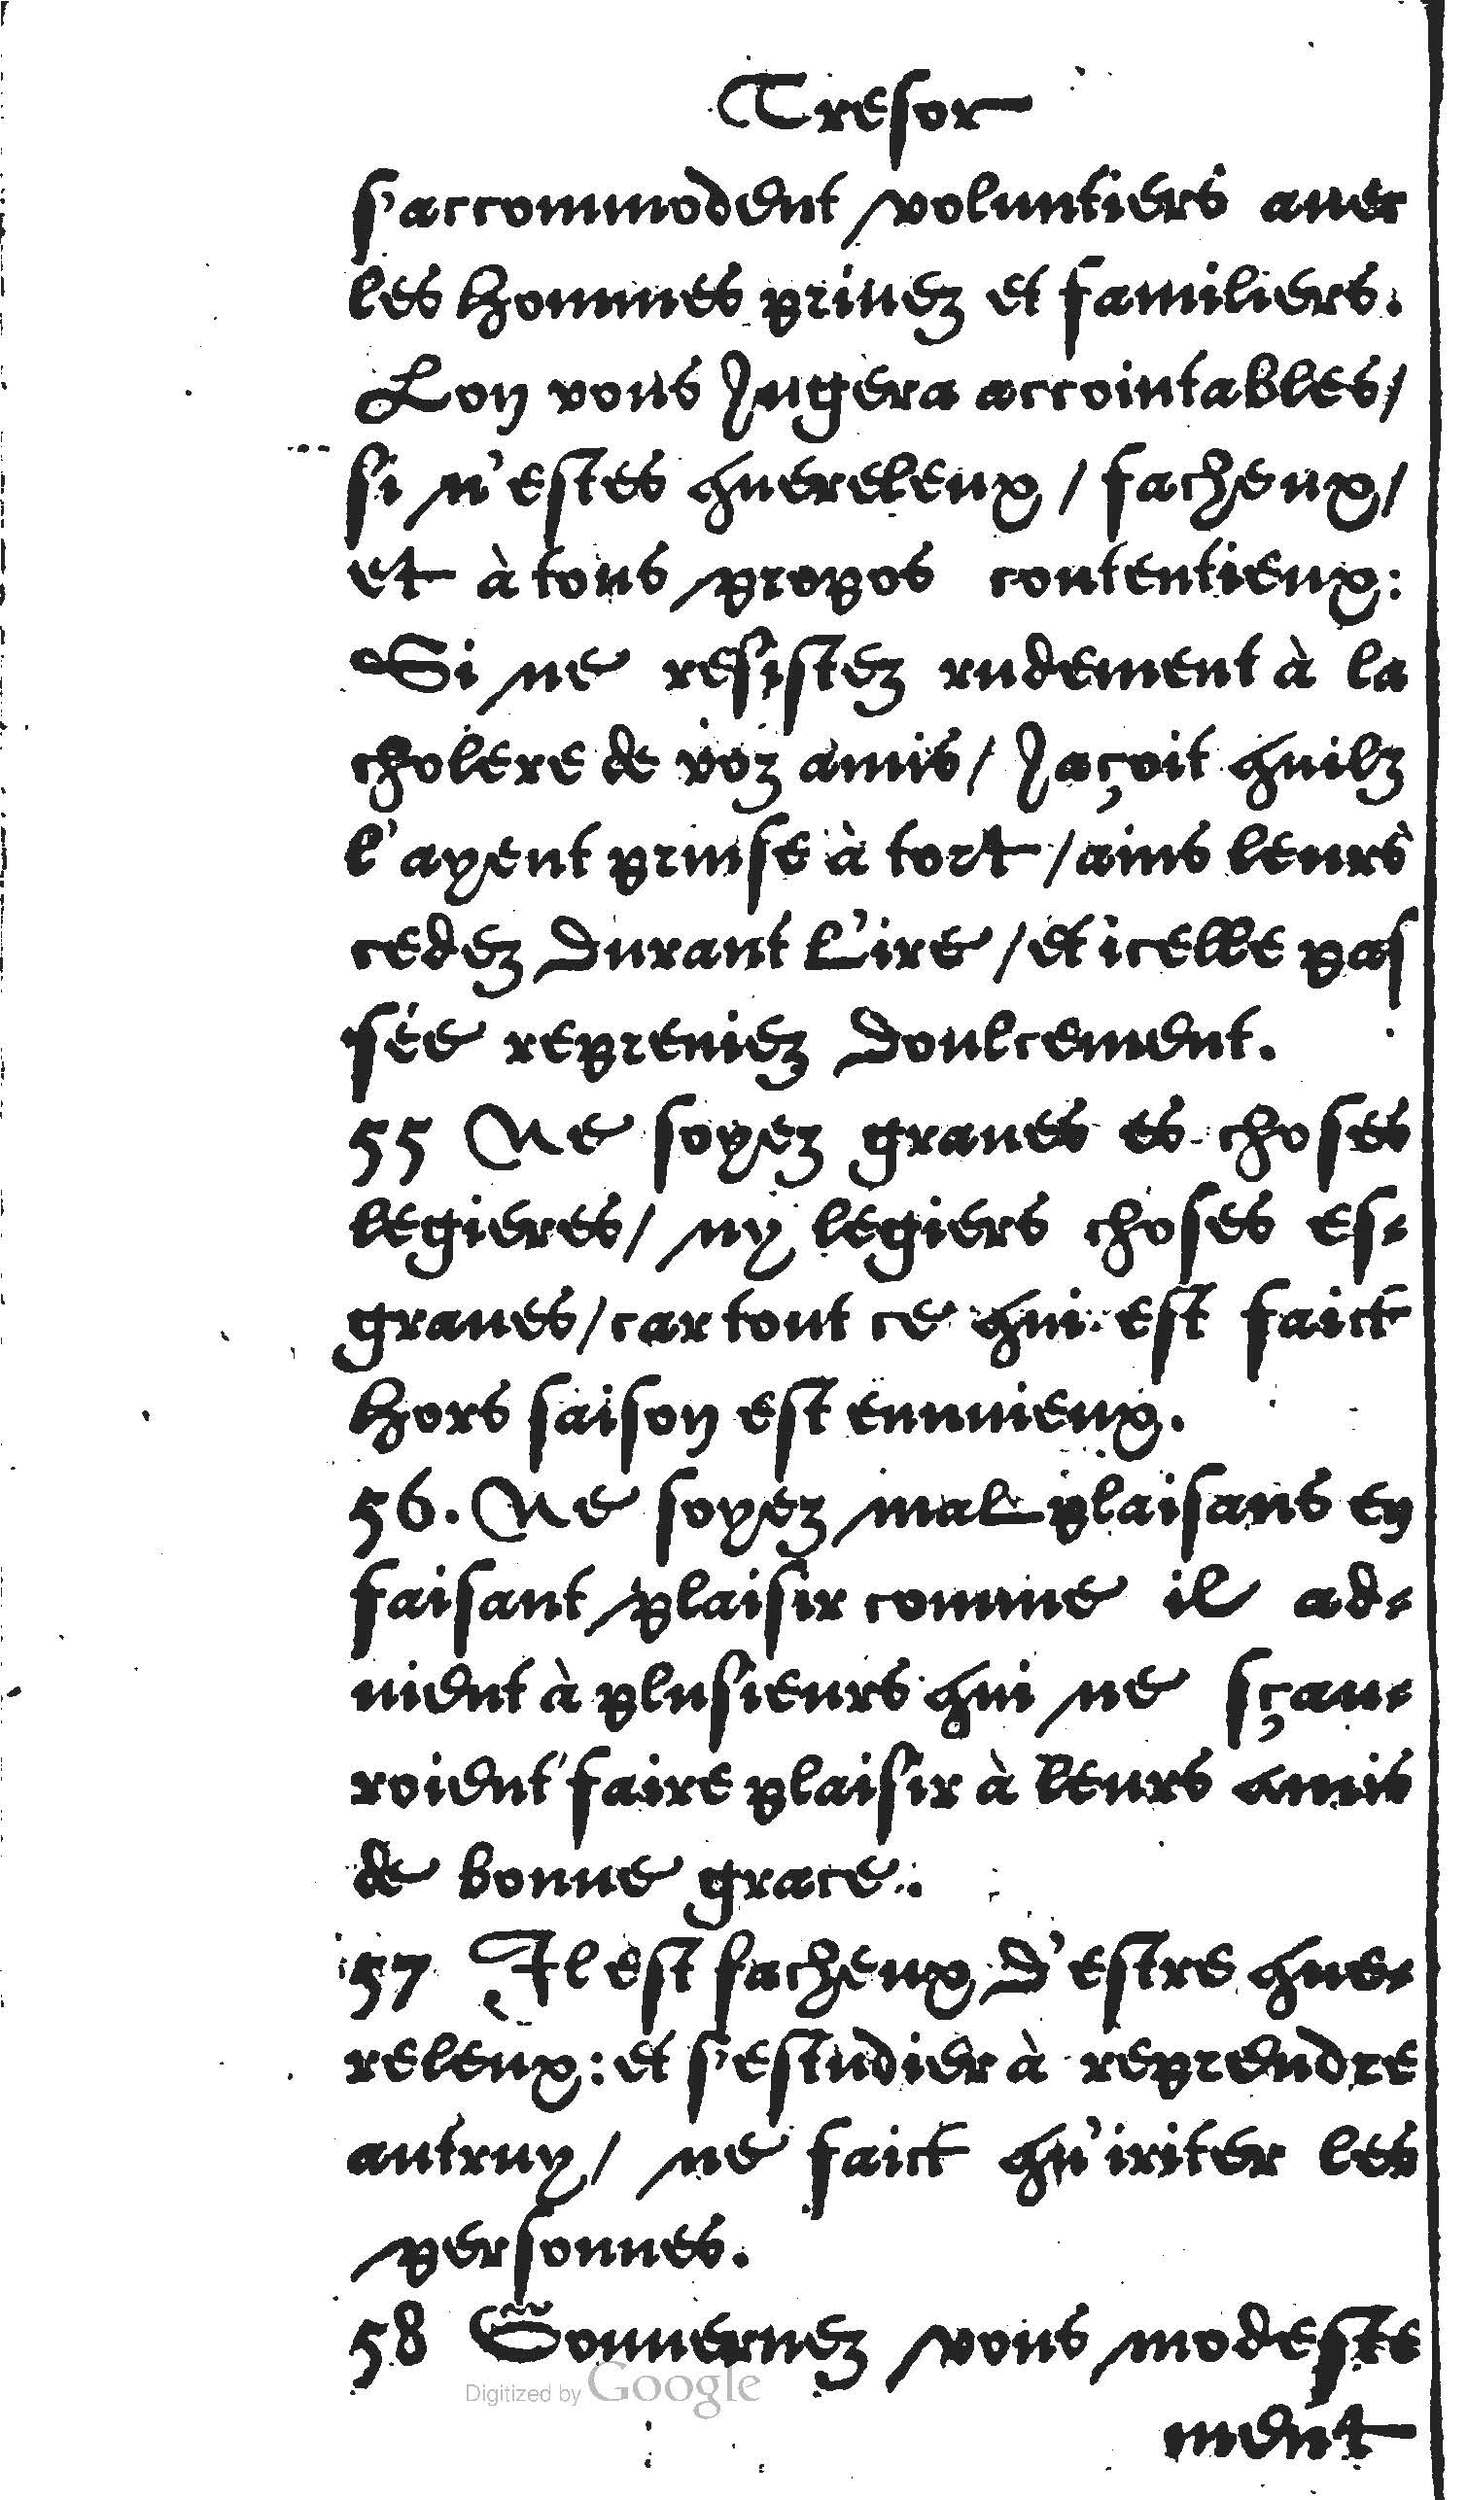 Tresor
s'accommodent voluntiers auec
les hommes priuez et familiers.
Lon vous Jugera accointables/
si n'estes quereleux/ facheux/
et à tous propos contentieux:
Si ne resistez rudement à la
cholere de voz amis/ Jaçoit quilz
l'ayent prinse à tort/ ains leurs
cedez durant l'ire/ et icelle pas
sée repreniez doulcement.
55 Ne soyez graues es choses
legieres/ ny legiers choses es-
graues/ car tout ce qui est faict
hors saison est ennuieux.
56. Ne soyez mal plaisans en
faisant plaisir comme il ad-
uient à plusieurs qui ne sçau-
roient faire plaisir à leurs amis
de bonne grace.
57 Il est facheux d'estre que-
releux: et s'estudier à reprendre
autruy/ ne faict qu'iriter les
personnes.
58 Gouuernez vous modeste
Digitized by Google
ment